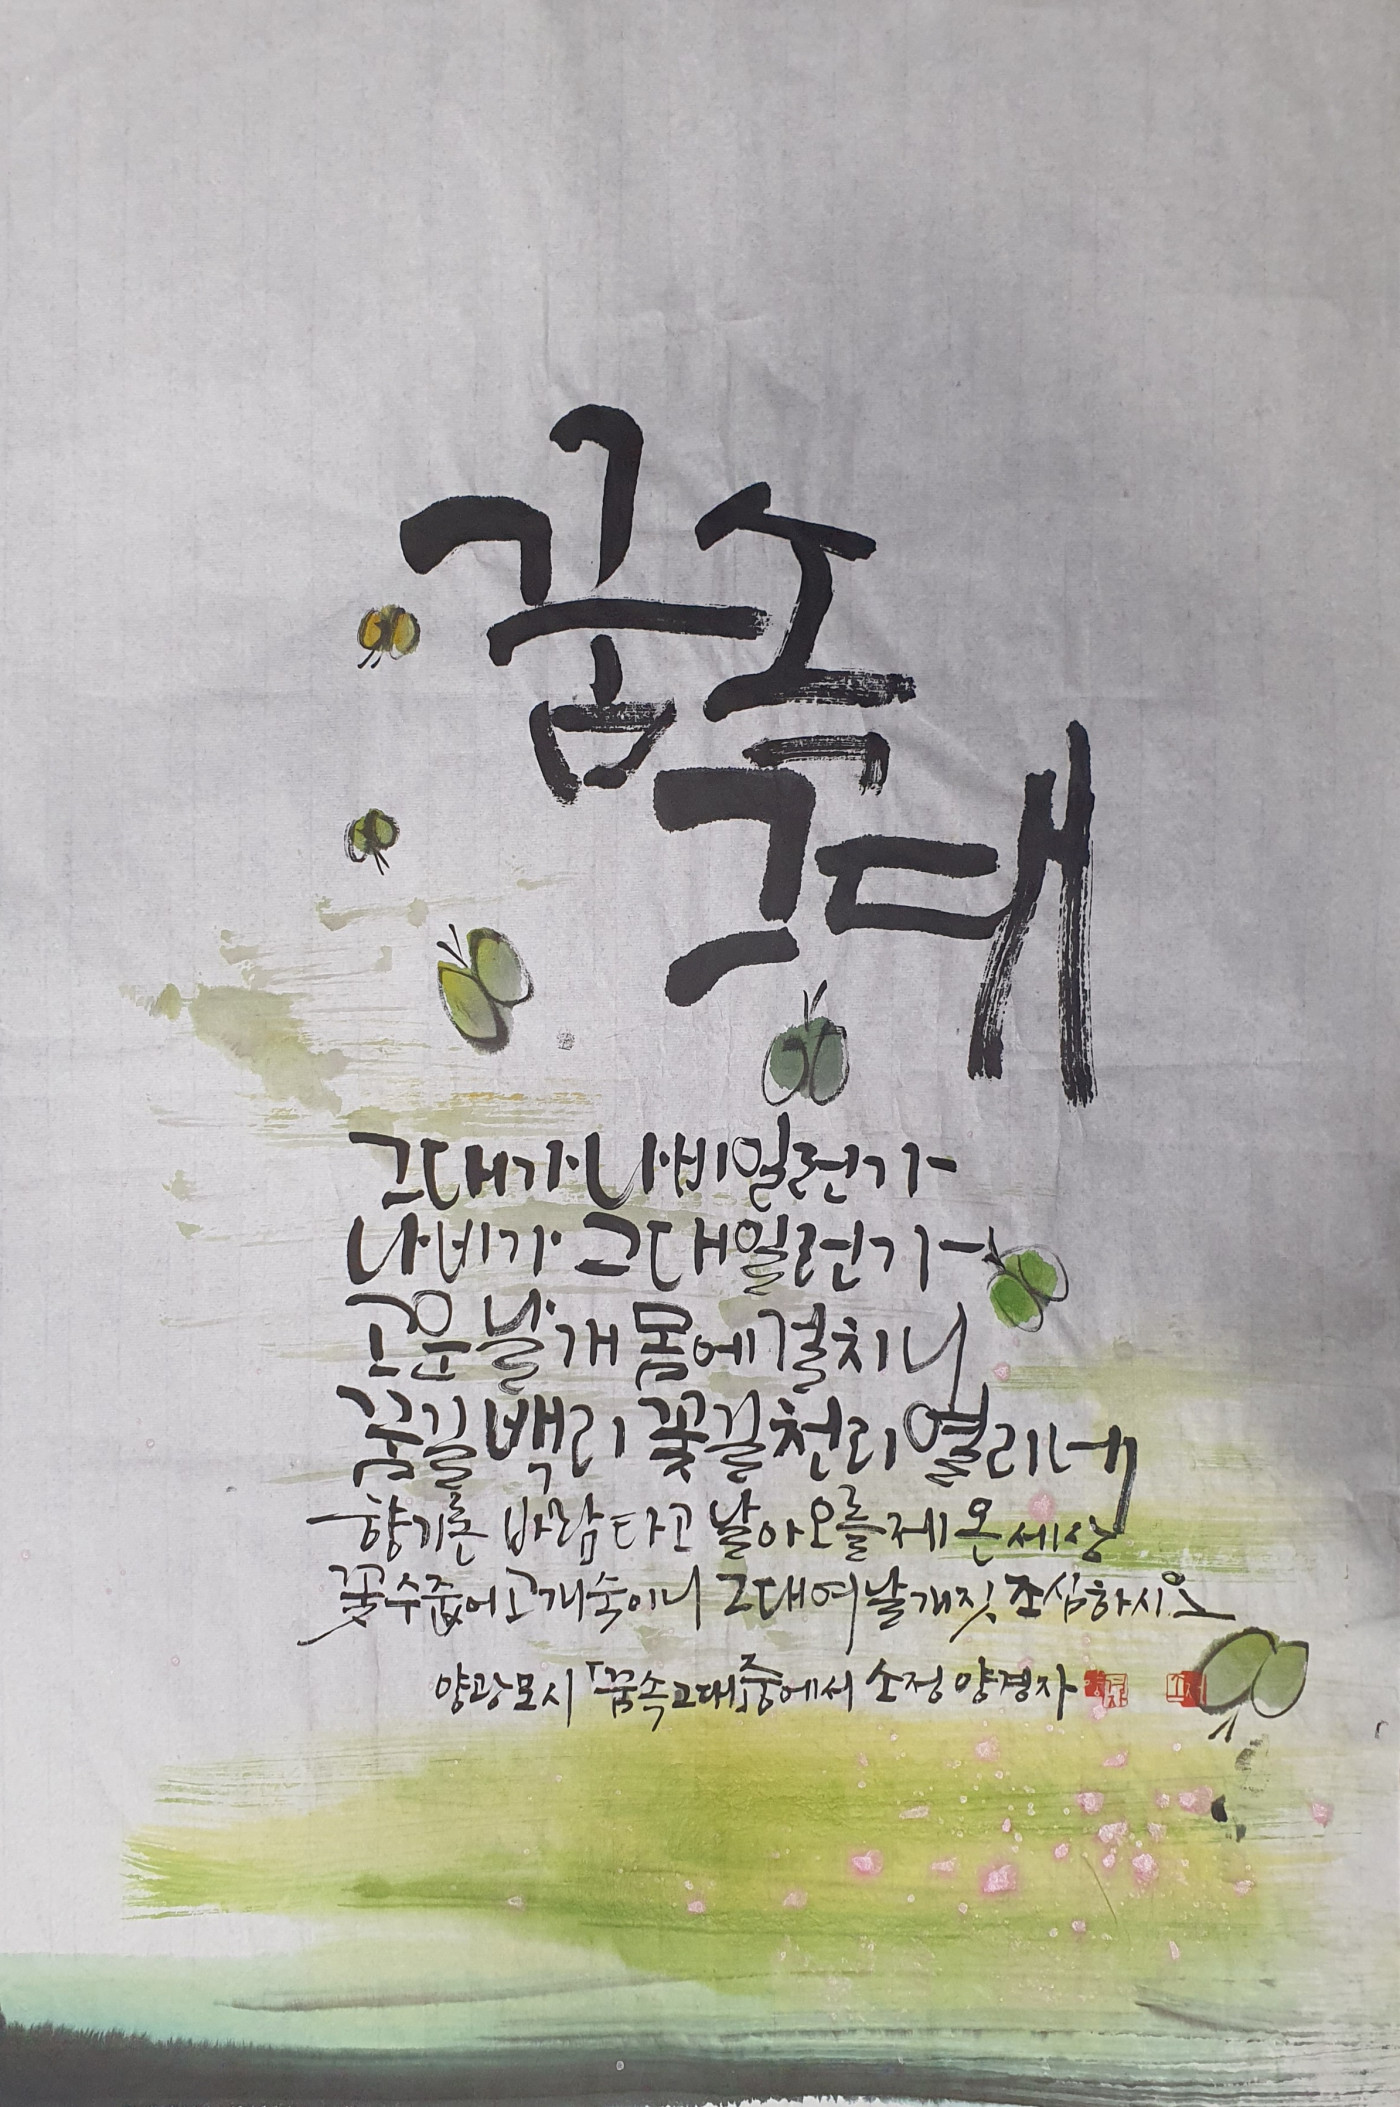 꿈속
그대
그대가 나비일런가
나비가 그대일런가
고운 날개 몸에 걸치니
꿈길 백리 꽃길 천리 열리네
향기론 바람 타고 날아오를제 온 세상
꽃 수줍어 고개 숙이니 그대여 날개짓 조심하시오
양광모 시 「꿈속 그대」 중에서 소정 양경자